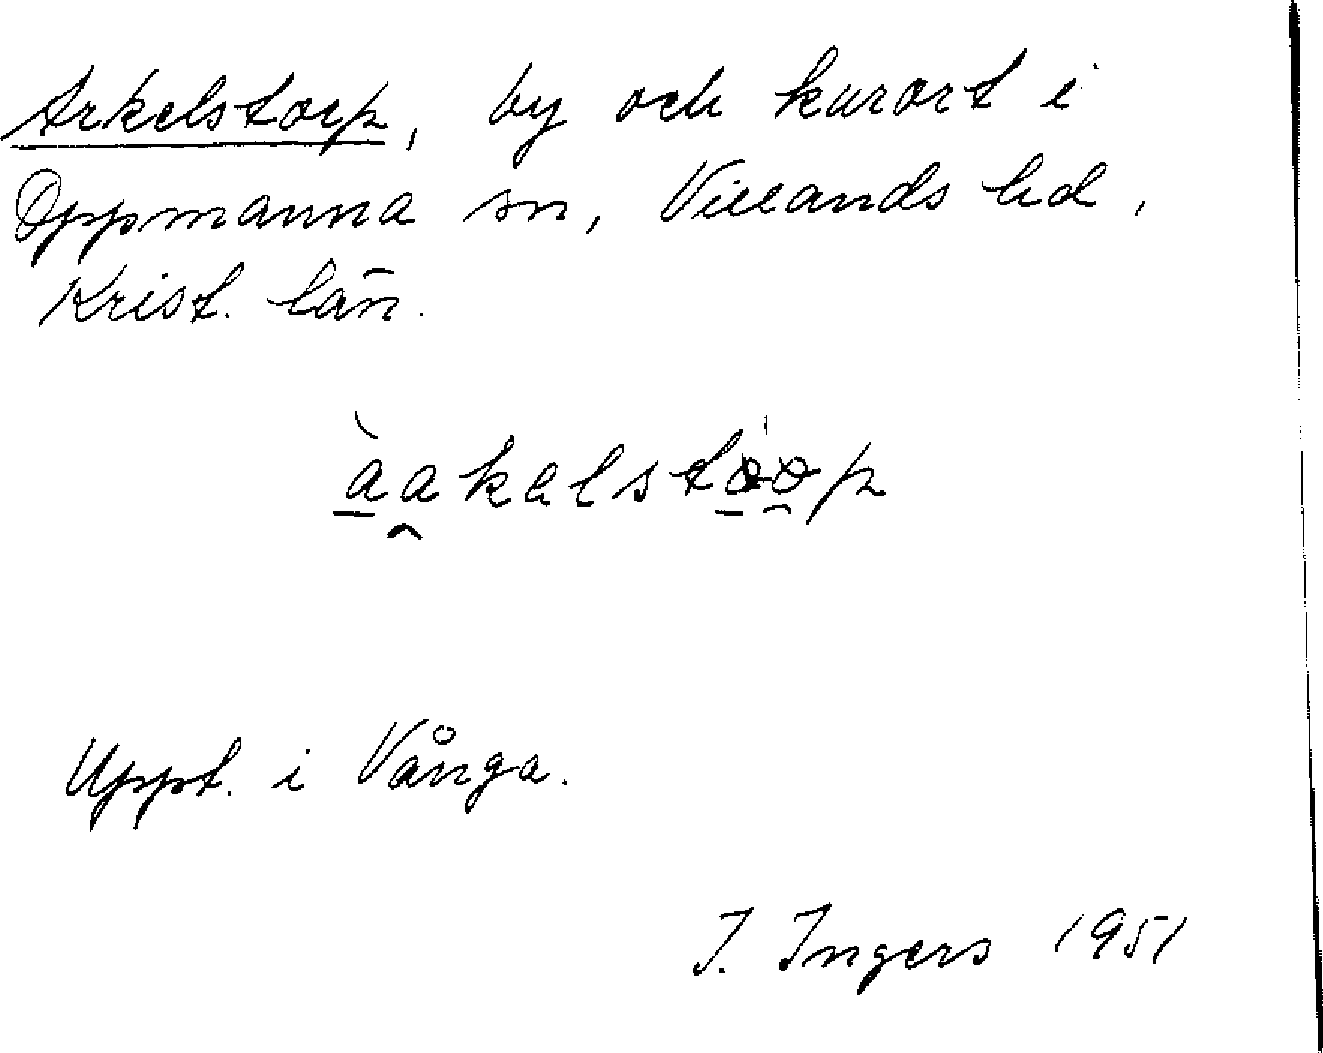 Arkelstorp, by och kurort i
Oppmanna sn, Villands hd,
Krist. län.
àakelstoop
Uppt. i Vånga.
I. Ingers 1951